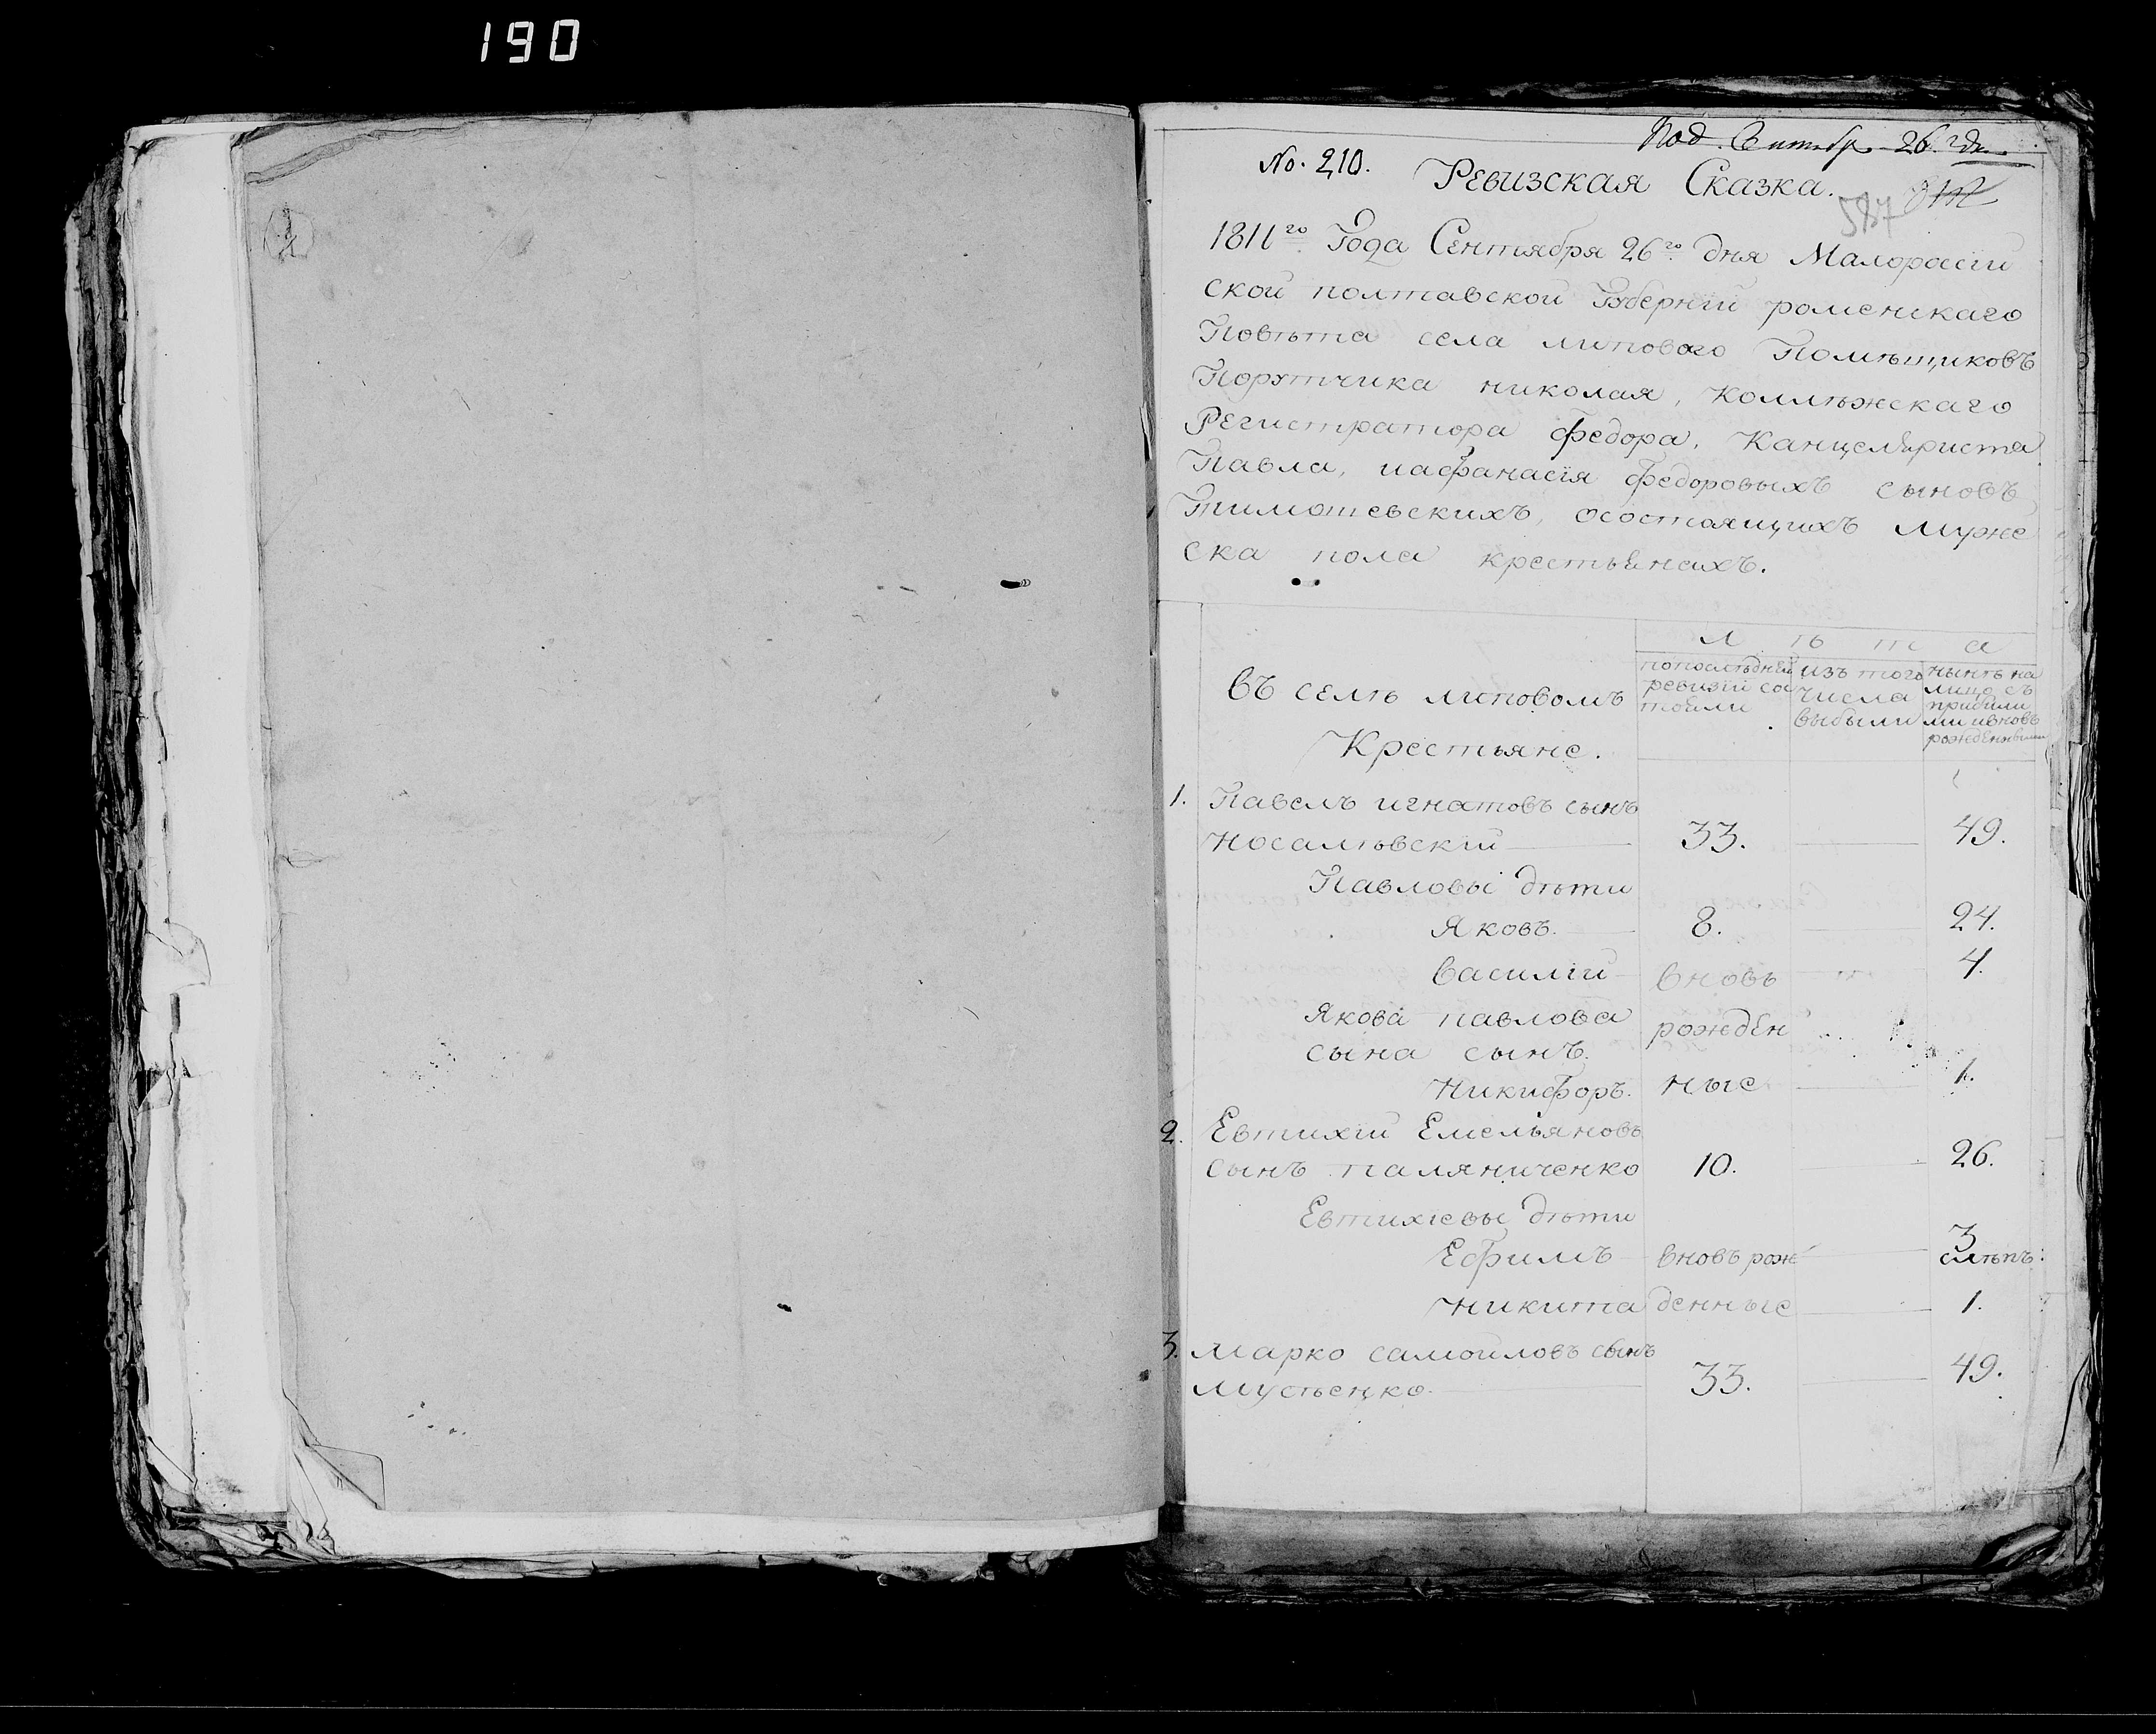 190
Под. Сентябр. 26. го дн.
No. 210.
Ревизская Сказка.
587
1811го Года Сентября 26го дня Малоросіи
ской полтавской Губерніи роменскаго
Повѣта села липоваго Помѣщиковъ
Порутчика николая, Коллѣжскаго
Регистратора федора, Канцеляриста
Павла, иафанасія федоровыхъ сыновъ
Тимошевскихъ, осостоящихъ муже
ска пола крестьянехъ.
Л ѣ т а
въ селѣ липовомъ
Крестьяне.
попослѣдней
ревизіи сос
тояли
изъ того
числа
выбыли
нынѣ на
лицо съ
прибыли
ми ивновь
рожденными
1. Павелъ игнатовъ сынъ
носалѣвскій 33. 49.
Павловы дѣти
Яковъ. 8. 24.
Василій вновь 4.
Якова павлова рожден
сына сынъ.
Никифоръ. ные 1.
2. Евтихій Емельяновъ
сынъ паляниченко 10. 26.
Евтихіевы дѣти
Ефимъ вновь рож 3
слѣпъ:
Никита денные 1.
3. Марко самойловъ сынъ
мусѣенко 33. 49.